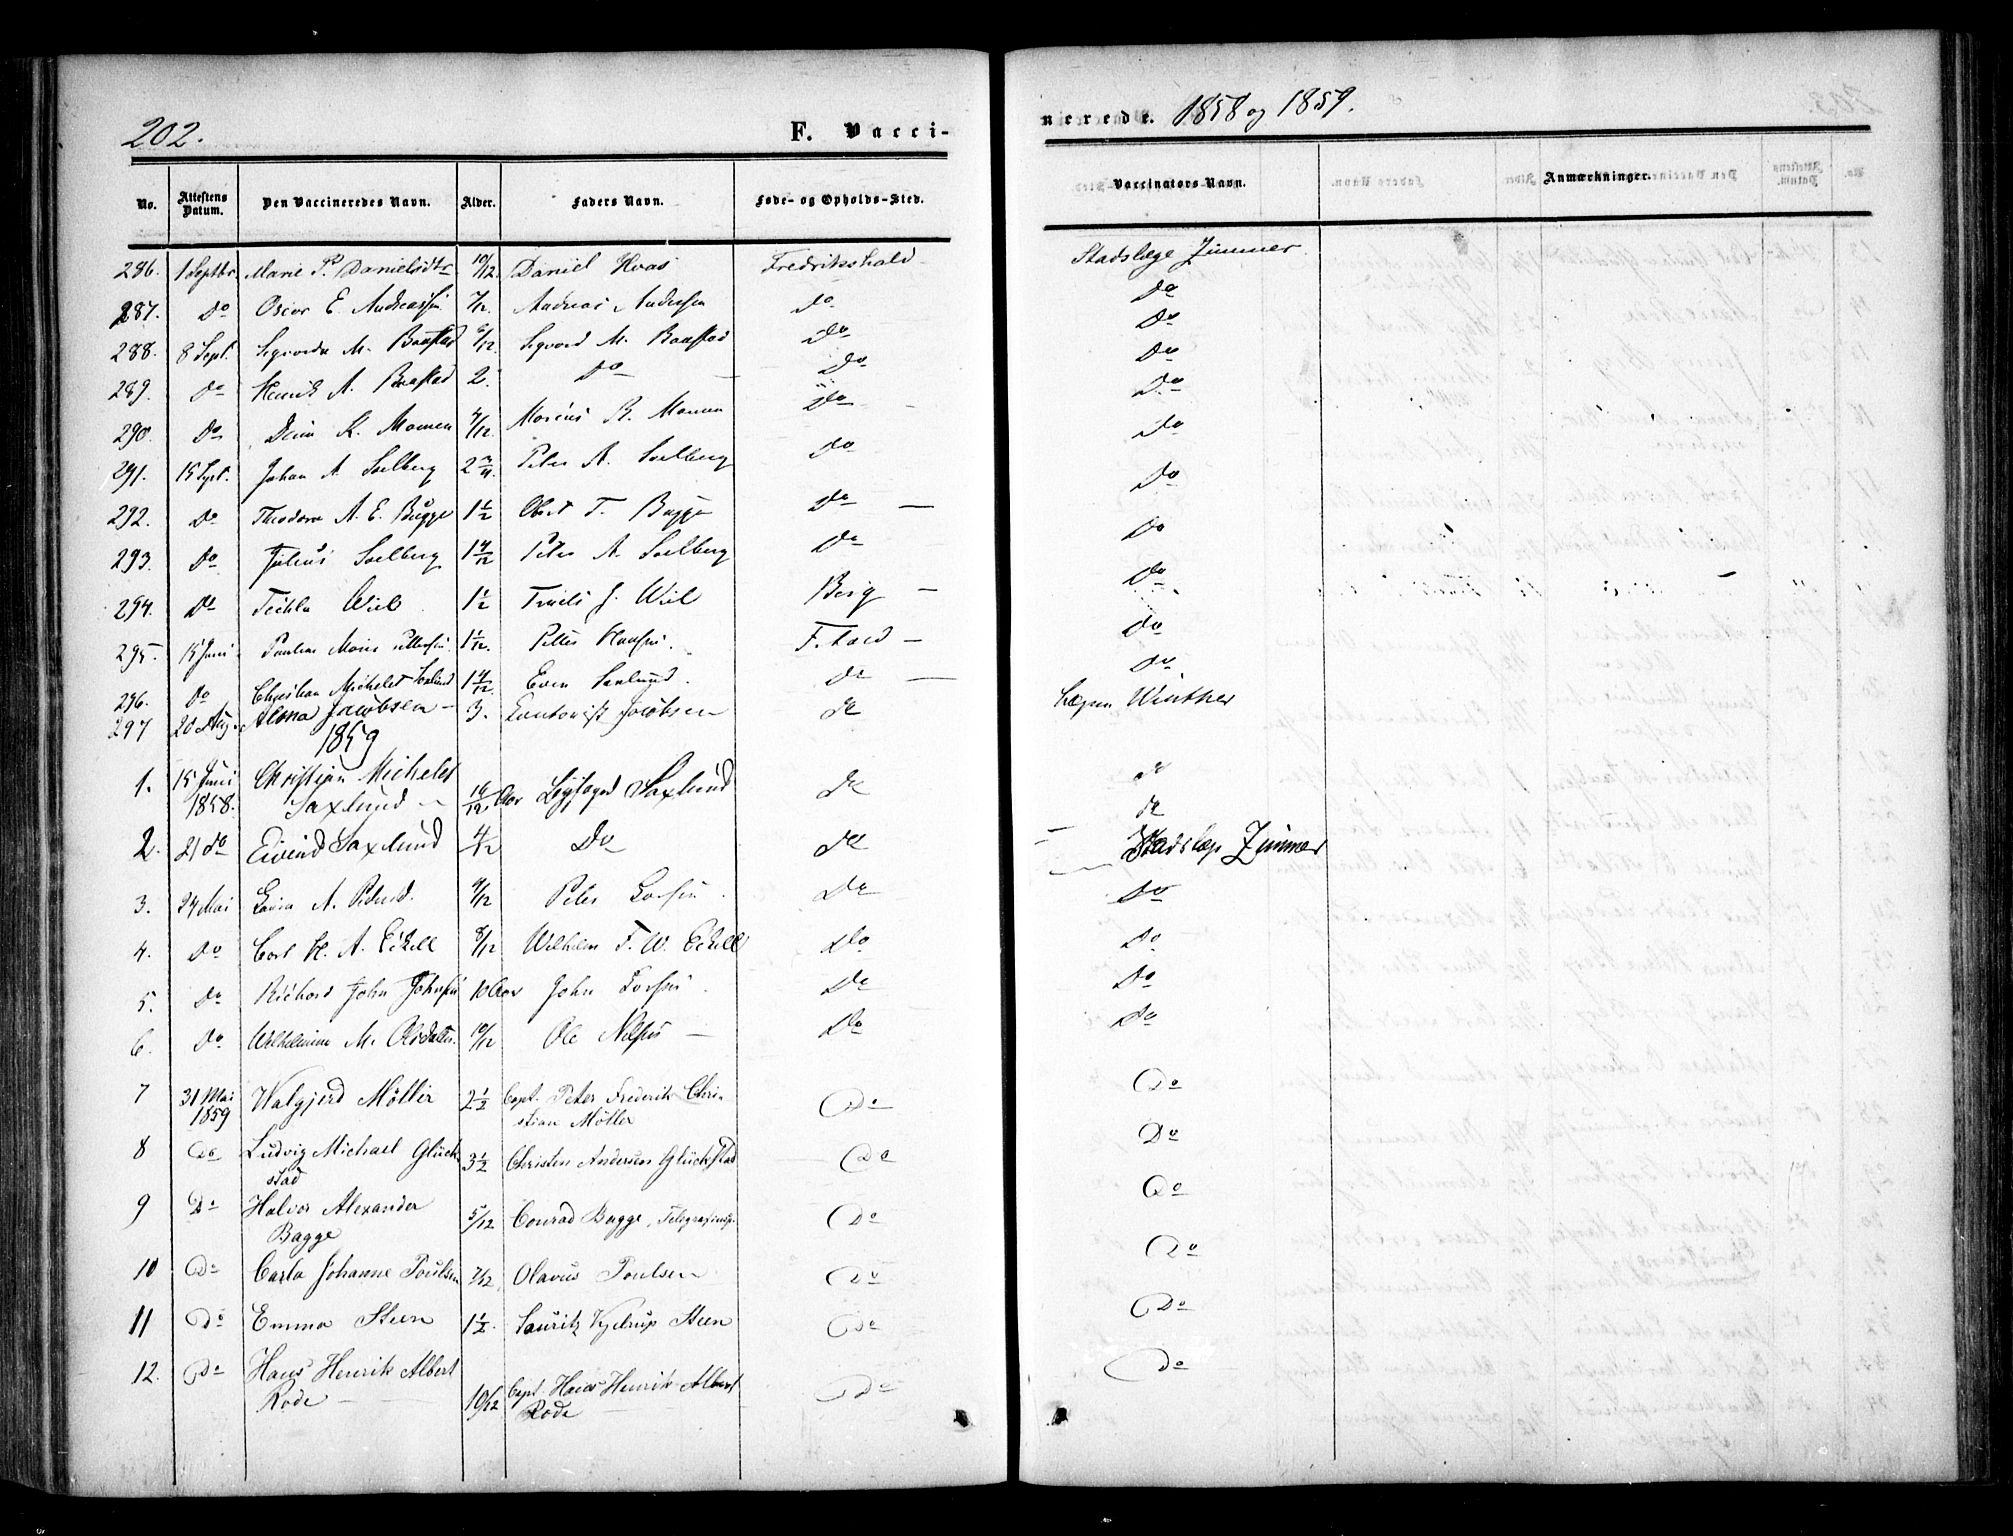 202.
F. Vacci-
nerede. 1858 og 1859.
No. Attestens Datum. Den Vaccineredes Navn. Alder. Faders Navn. Føde- og Opholds-Sted. Vaccinators Navn. Anmærkninger.
286. 1 Septbr Marie P. Danielsdtr 10/12 Daniel Hvas Fredrikshald Stadslæge Zimmer
287. Do Oscar E. Andreassen 7/12 Andreas Andersen Do Do
288. 8 Sept. Sigvarda M. Baastad 6/12 Sigvard M. Baastad Do Do
289. Do Henrik A. Baastad 2. Do Do Do
290. Do K. Momen 4/12 Marcus R. Momen Do Do
291. 15 Sept. Johan A. Soelberg 2 3/4 Peter A. Soelberg Do Do
292. Do Theodora A. E. Bugge 1 1/2 T. Bugge Do Do
293. Do Julius Soelberg 1 4/12 Peter A. Soelberg Do Do
294. Do Teckla Wiel 1 1/2 Truels J. Wiel Berg Do
295. 15 Juni Pauline Marie 1 1/12 Petter Hansen F.hald Do
296. Do Christian Michelet Saxlund 1 4/12 Even Saxlund Do Do
297 20 Aug. Alma Jacobsen 3. Jacobsen do Lægen Winther
1859
1. 15 Juni 1858. Christian Michelet Saxlund 16/12 Aar Saxlund do do
2. 21 do Eivind Saxlund 4/12 Do do do
Stadslæge Zimmer
3. 24 Mai A. 4/12 Peter Larsen Do Do
4. Do Carl H. A. Eckell 8/12 Wilhelm F. W. Eckell Do Do
5. Do Richard John Johnsen 10 Aar John Do Do
6. Do Wilhelmine M. Olsdatter 10/12 Ole Nilsen Do Do
7 31 Mai 1859 Valgjerd Möller 2 1/2 Capt. Peter Frederik Chri-
stian Möller Do Do
8 Do Ludvig Michael Glück
stad 3 1/2 Christen Andersen Glückstad Do Do
9 Do Halvor Alexander
Bagge 5/12 Conrad Bagge, Telegrafinsp. Do Do
10 Do Carla Johanne Poulsen 7/12 Olavus Poulsen Do Do
11 Do Emma Steen 1 1/2. Lauritz Steen Do Do
12. Do Hans Henrik Albert
Rode 10/12 Capt. Hans Henrik Albert
Rode Do Do